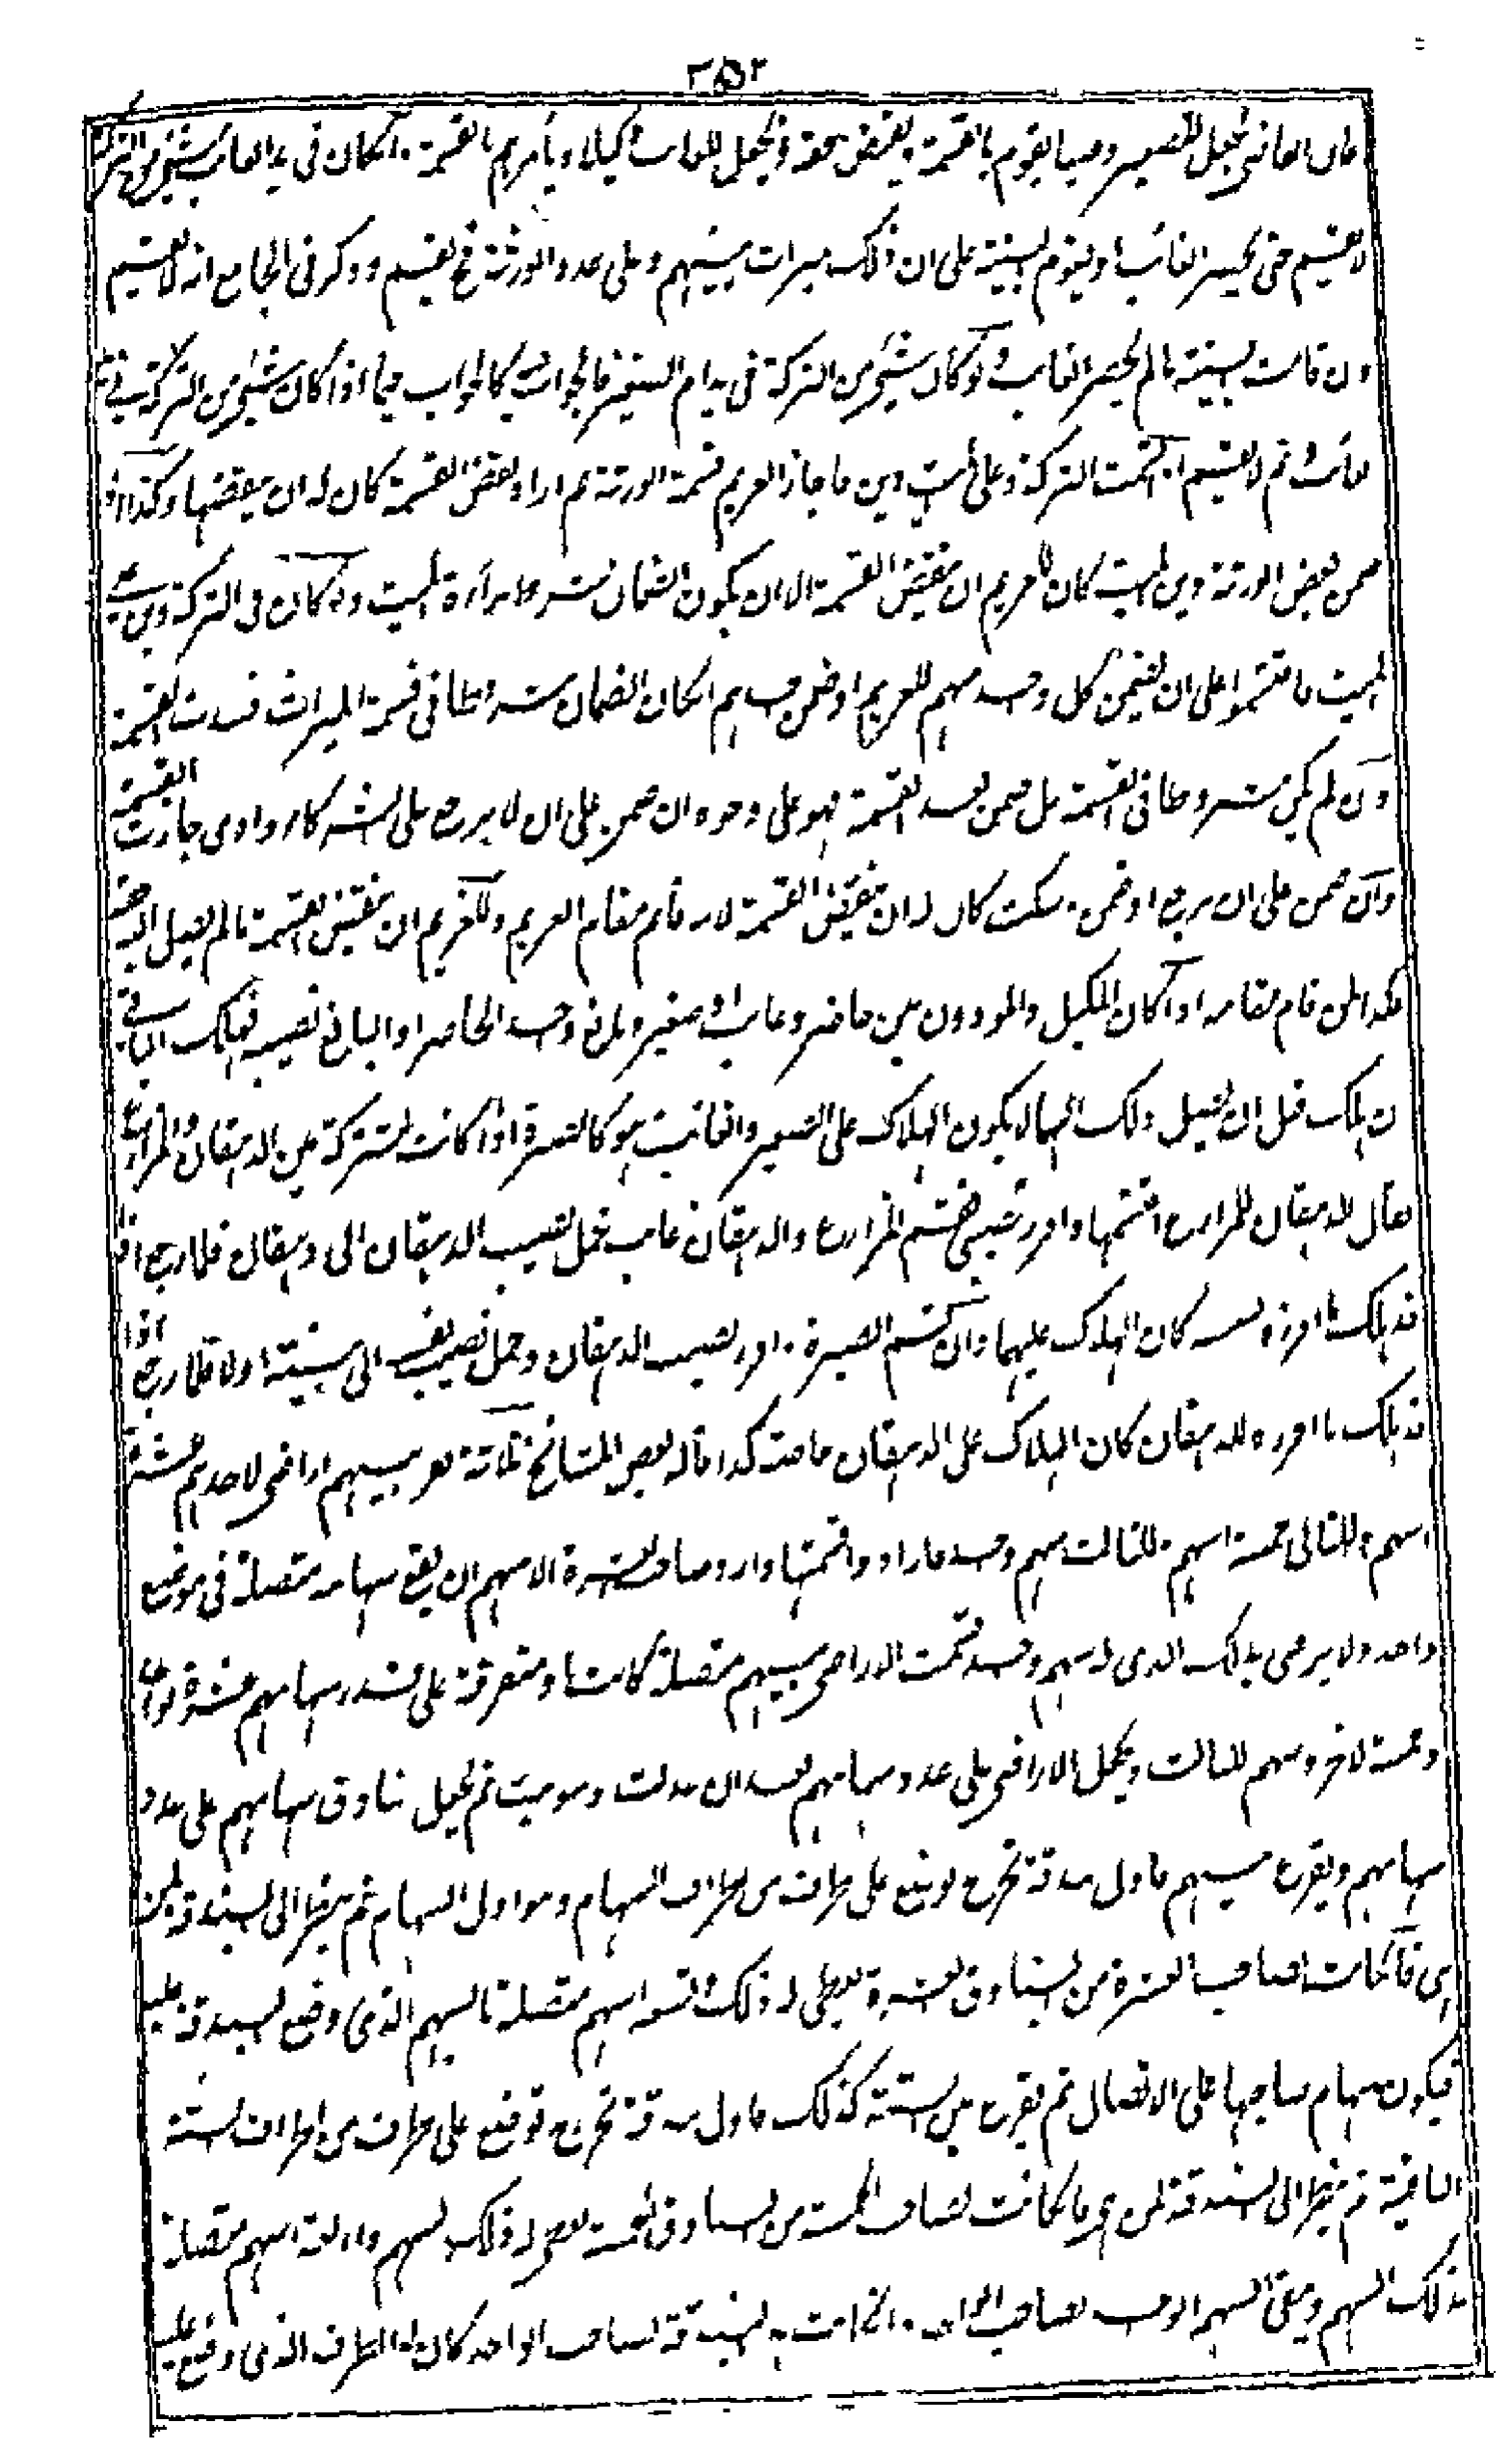 ٣٥٢
فان القاضي يجعل للصغير وصيا يقوم بالقسمة ويقبض حقه ويجعل للغائب وكيلا ويأمرهم بالقسمة وان كان في يد الغائب شيء من التركة
لا يقسم حتى يحضر الغائب او يقوم البينة على ان ذلك ميراث بينهم وعلى عدد الورثة فح يقسم وذكر في الجامع انه لا يقسم
وان قامت البينة ما لم يحضر الغائب ولو كان شيء من التركة في يد ام الصغير فالجواب كالجواب فيما اذا كان شيء من التركة في يد
الغائب ثم لا يقسم اذا قسمت التركة وعلى الميت دين فاجاز الغريم قسمة الورثة ثم اراد نقض القسمة كان له ان ينقضها وكذا اذا
ضمن بعض الورثة دين الميت كان للغريم ان ينقض القسمة الا ان يكون الضمان بشرط براءة الميت ولو كان في التركة دين على
الميت فاقتسموا على ان يضمن كل واحد منهم للغريم او ضمن احدهم ان كان الضمان مشروطا في قسمة الميراث فسدت القسمة
وان لم يكن مشروطا في القسمة بل ضمن بعد القسمة فهو على وجوه ان ضمن على ان لا يرجع على الشركاء وادى جازت القسمة
وان ضمن على ان يرجع او ضمن وسكت كان له ان ينقض القسمة لانه قائم مقام الغريم وللغريم ان ينقض القسمة ما لم يصل اليه حقه
فكذا لمن قام مقامه اذا كان المكيل والموزون بين حاضر وغائب او صغير وبالغ فاخذ الحاضر او البالغ نصيبه فهلك الباقي
ان هلك قبل ان يصل ذلك اليهما يكون الهلاك على الصغير والغائب هو كالصبرة اذا كانت مشتركة بين الدهقان والمزارع
فقال الدهقان للمزارع اقسمها وافرز نصيبي فقسم المزارع والدهقان غائب فحمل نصيب الدهقان الى الدهقان فلما رجع اذا
قد هلك ما افرزه لنفسه كان الهلاك عليهما وان قسم الصبرة وافرز نصيب الدهقان وحمل نصيب نفسه الى بيته اولا فلما رجع اذا
قد هلك ما افرزه للدهقان كان الهلاك على الدهقان خاصة كذا قاله بعض المشائخ ثلاثة نفر بينهم اراضي لاحدهم عشرة
اسهم وللثاني خمسة اسهم وللثالث سهم واحد فارادوا قسمتها واراد صاحب العشرة الاسهم ان يقع سهامه متصلة في موضع
واحد ولا يرضى بذلك الذي له سهم واحد قسمت الاراضي بينهم متصلة كانت او متفرقة على قدر سهامهم عشرة لواحد
وخمسة لاخر وسهم للثالث ويجعل الاراضي على عدد سهامهم بعد ان عدلت وسويت ثم يجعل بنادق سهامهم على عدد
سهامهم ويقرع بينهم فاول بندقة تخرج توضع على طرف من اطراف السهام وهو اول السهام ثم ينظر الى البندقة لمن
هي فان كانت لصاحب العشرة من البنادق العشرة يعطى له ذلك وتسعة اسهم متصلة بالسهم الذي وضع البندقة عليه
فيكون سهام صاحبها على الاتصال ثم يقرع بين الستة كذلك فاول بندقة تخرج توضع على طرف من اطراف الستة
الباقية ثم ينظر الى البندقة لمن هي فان كانت لصاحب الخمسة من البنادق الخمسة يعطى له ذلك السهم واربعة اسهم متصلة
بذلك السهم ويبقى السهم الواحد لصاحب الواحد وان كانت هذه البندقة لصاحب الواحد كان له الطرف الذي وضع عليه